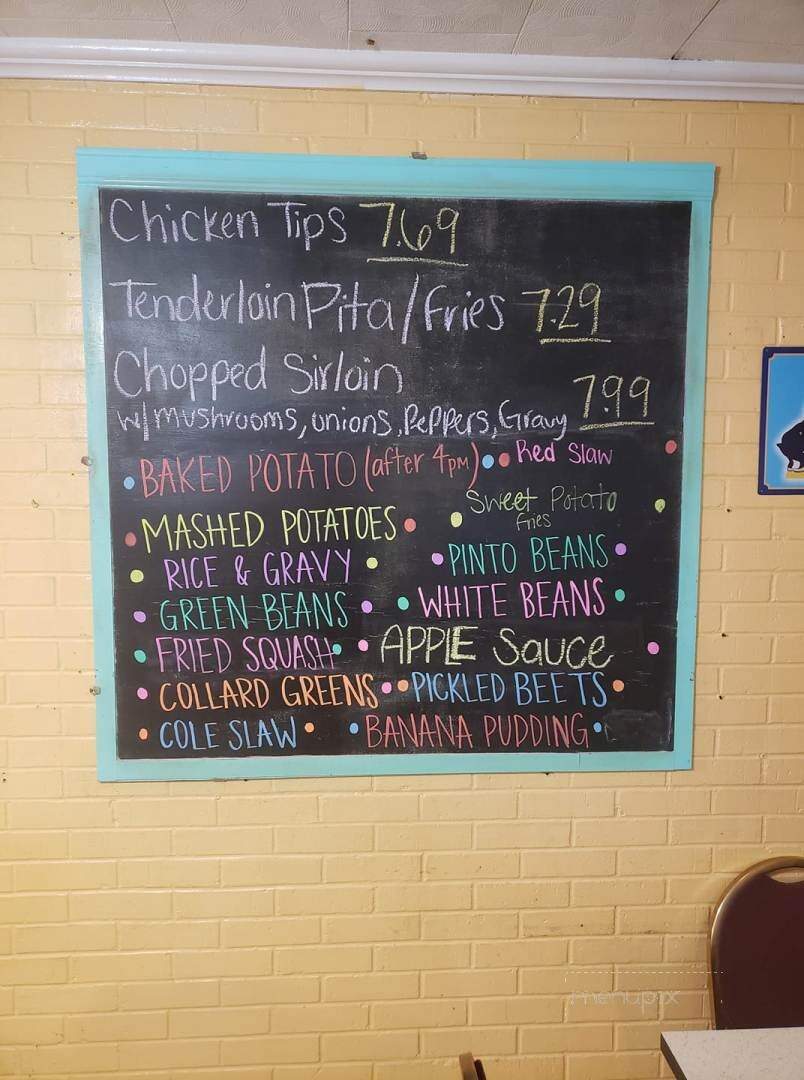 Chicken Tips 7.69
Tenderloin Pita/Fries 7.29
Chopped Sirloin
w/mushrooms, onions, Peppers, Gravy 7.99
BAKED POTATO (after 4pm)
Red Slaw
MASHED POTATOES
Sweet Potato
fries
RICE & GRAVY
PINTO BEANS
GREEN BEANS
WHITE BEANS
FRIED SQUASH
APPLE Sauce
COLLARD GREENS
PICKLED BEETS
COLE SLAW
BANANA PUDDING
menupix